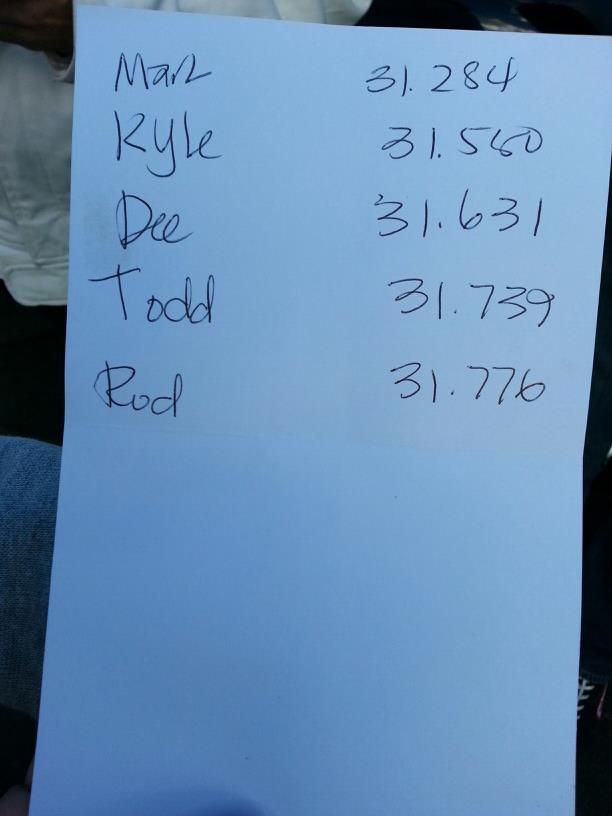 Mark 31.284
Kyle 31.560
Dee 31.631
Todd 31.739
Rod 31.776